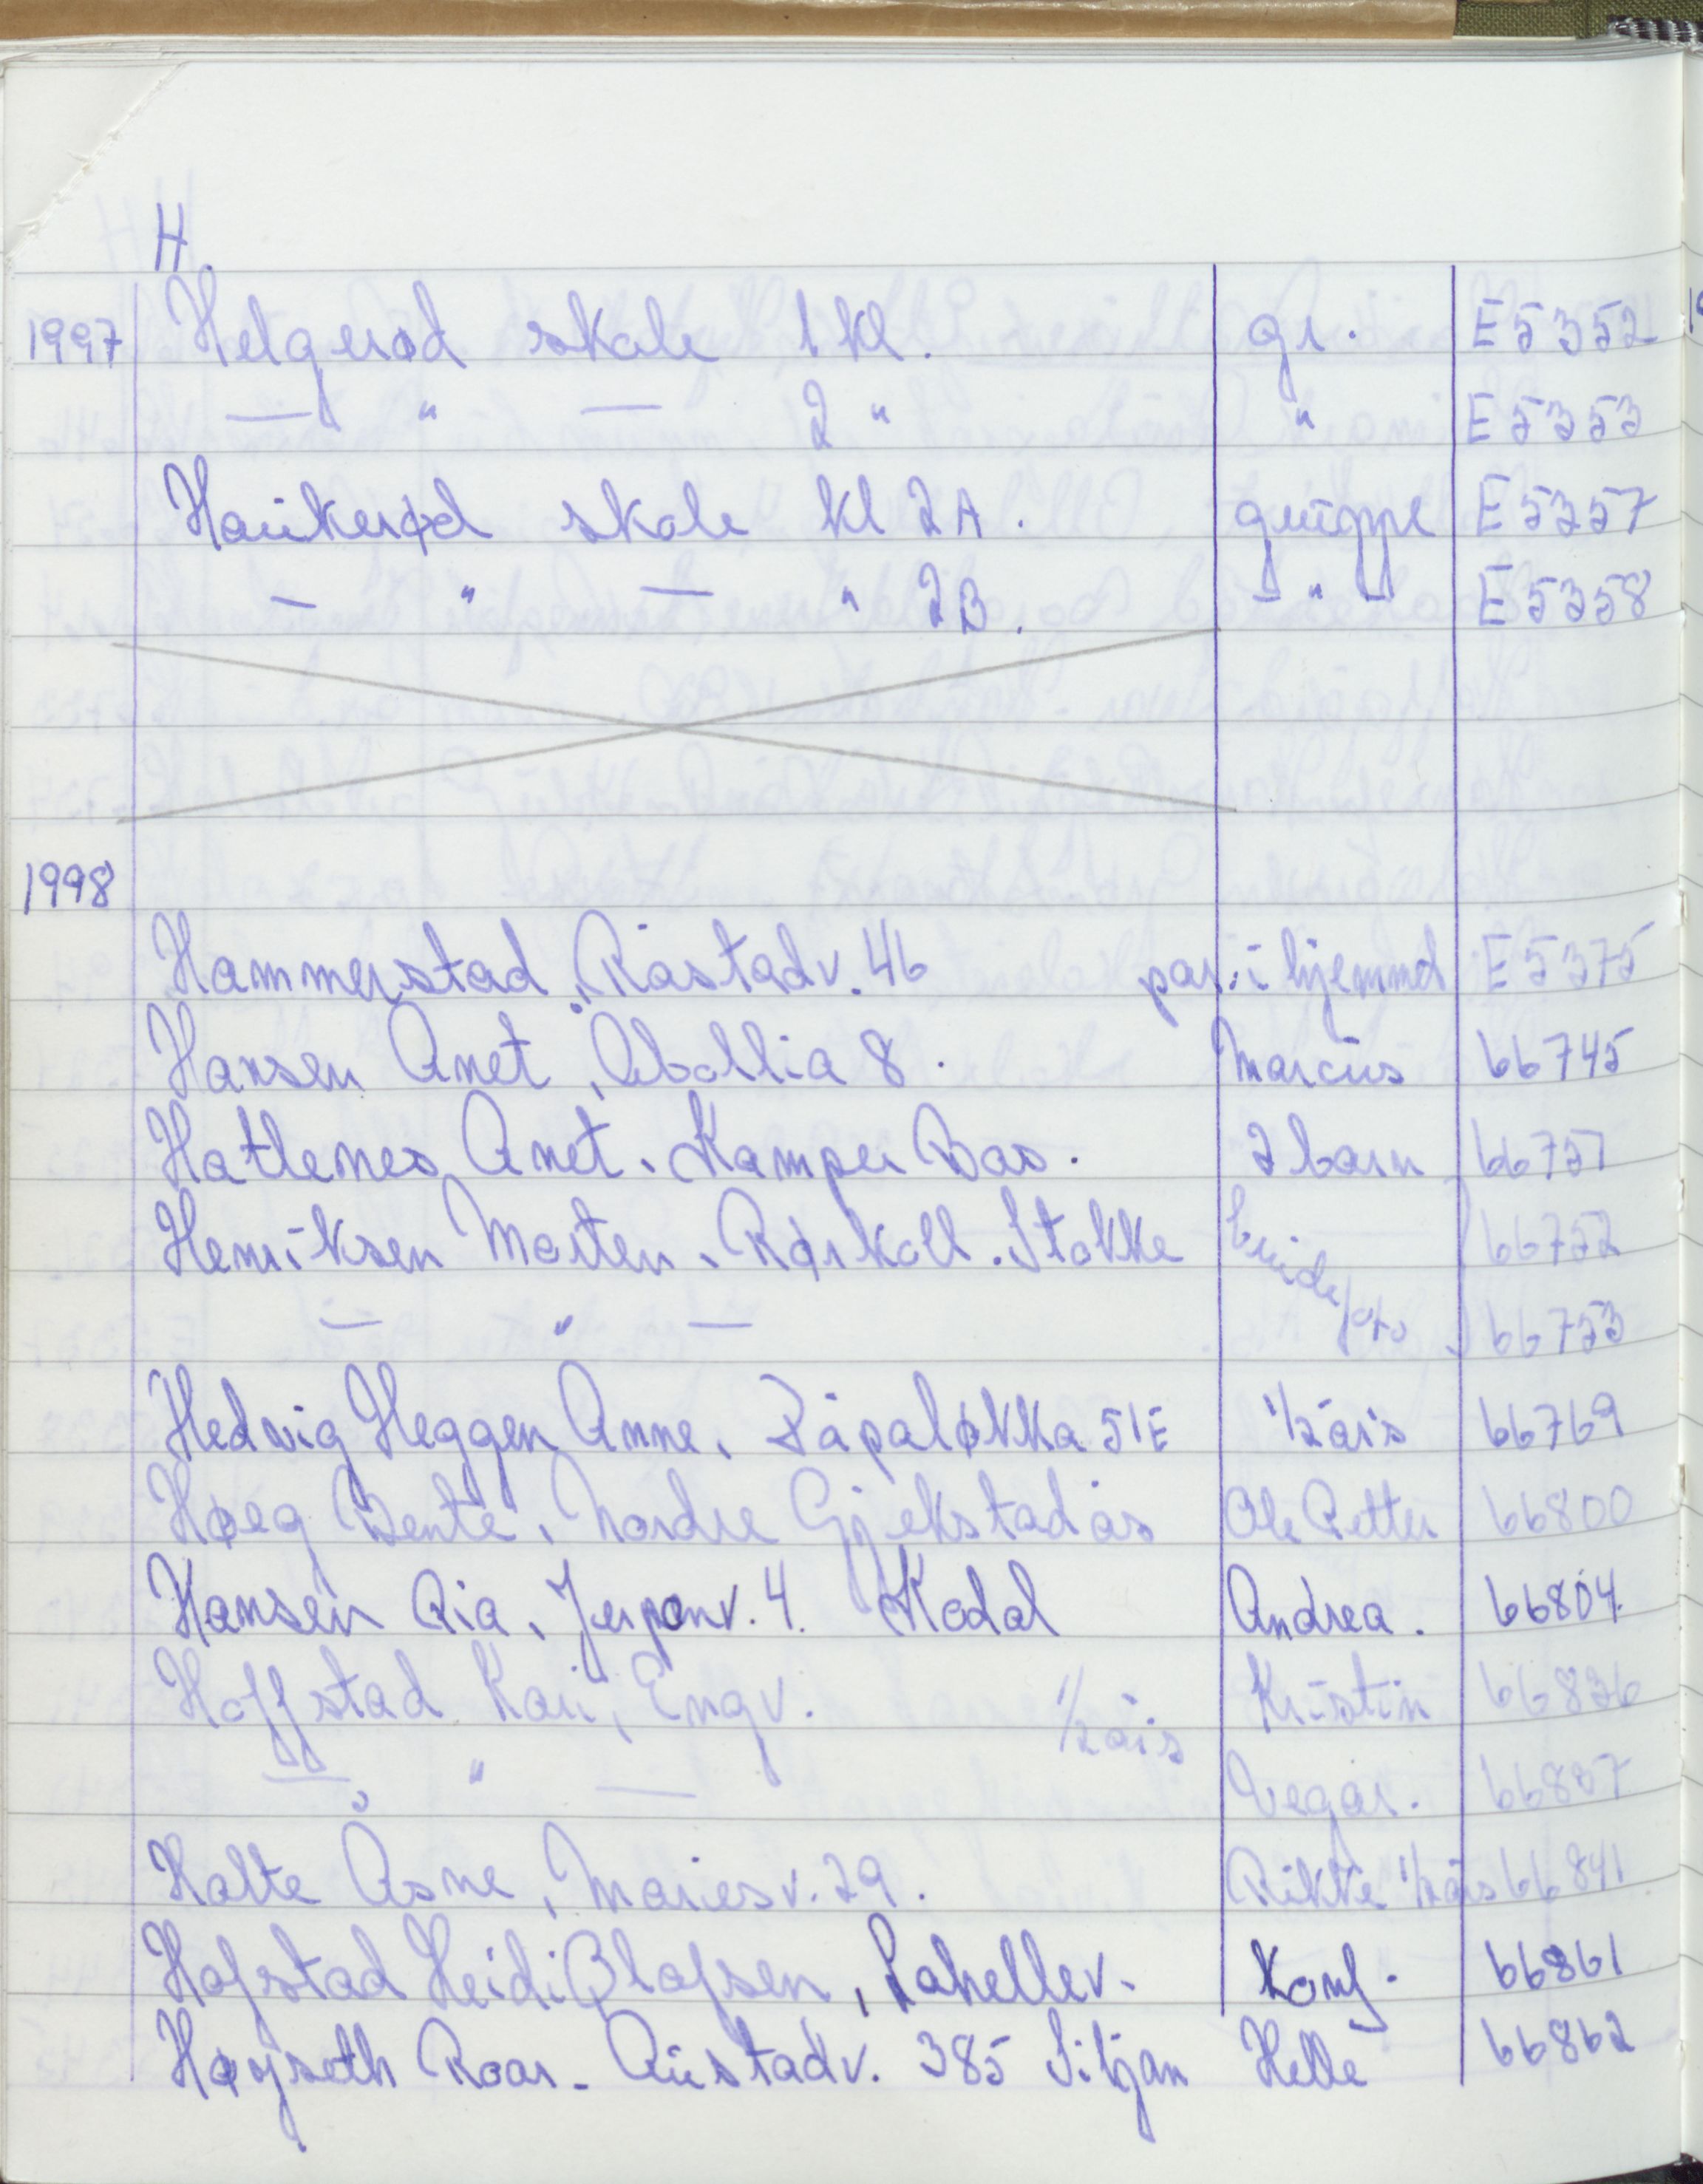 H.
1997 Helgerød skole 1 kl. gr. E5352
— " — 2 " " E5353
Haukerød skole kl 2A. gruppe E5357
— " — " 2B. — " — E5358
1998
Hammerstad, Råstadv. 46 par. i hjemmet E5375
Hansen Anet, 8. Marcus 66745
Hatlenes Anet. Kamper Bas. 2 barn 66751
Henriksen Morten. Rørkoll. Stokke brude 66752
— " — foto 66753
Hedvig Heggen Anne, Råpaløkka 51E 1/2 års 66769
Høeg Bente, Nordre Gjekstad ås Ole Petter 66800
Hansen Ria, Jerpanv. 4. Kodal Andrea. 66804.
Hoffstad Kari, Engv. 1/2 års Kristin 66836
— " — Vegar. 66837
Holte Åsne, Mariesv. 29. Rikke 1/2 års 66841
Hofstad Heidi Olofsen, Lahellev. Konf. 66861
Høyseth Roar. Austadv. 385 Siljan Helle 66862